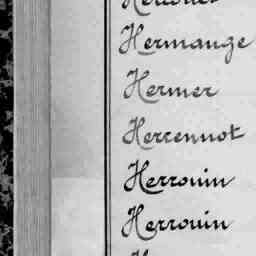 Hermange
Hermer
Herrennot
Herrouin
Herrouin